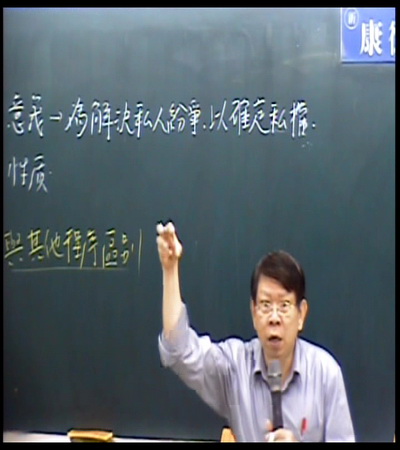 新
康
意義→為解決私人紛爭,以確定私權.
性质
與其他程序區別